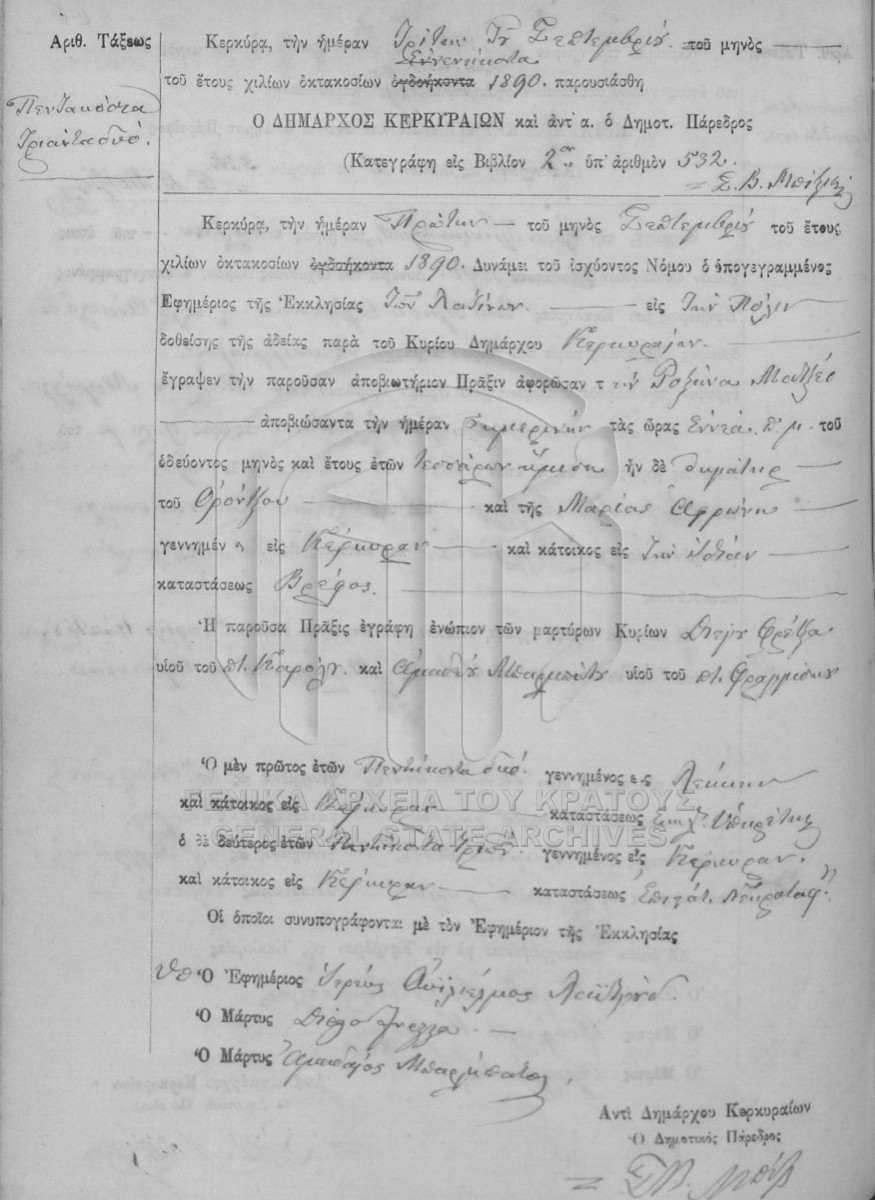 Αριθ. Τάξεως
Πεντακόσια
Τριάντα δυό.
Κερκύρα, τὴν ἡμέραν Τρίτην Σεπτεμβρίου τοῦ μηνὸς
Ἐννενήκοντα
τοῦ ἔτους χιλίων ὀκτακοσίων ὀγδοήκοντα 1890. παρουσιάσθη
Ο ΔΗΜΑΡΧΟΣ ΚΕΡΚΥΡΑΙΩΝ καὶ ἀντ' α. ὁ Δημοτ. Πάρεδρος
(Κατεγράφη εἰς Βιβλίον 2ον ὑπ' ἀριθμὸν 532.
Σ. Β.
Κερκύρα, τὴν ἡμέραν Πρώτην τοῦ μηνὸς Σεπτεμβρίου τοῦ ἔτους
χιλίων ὀκτακοσίων ὀγδοήκοντα 1890. Δυνάμει τοῦ ἰσχύοντος Νόμου ὁ ὑπογεγραμμένος
Ἐφημέριος τῆς Ἐκκλησίας Τῶν Λατίνων εἰς Τὴν Πόλιν
δοθείσης τῆς ἀδείας παρὰ τοῦ Κυρίου Δημάρχου Κερκυραίων.
ἔγραψεν τὴν παροῦσαν ἀποβιωτήριον Πρᾶξιν ἀφορῶσαν τ ὴν Ροζίνα
ἀποβιώσαντα τὴν ἡμέραν σημερινήν τὰς ὥρας Ἐννέα π. μ. τοῦ
ὁδεύοντος μηνὸς καὶ ἔτους ἐτῶν τεσσάρων ἥμισυ ἦν δὲ θυγάτηρ
τοῦ Ορόντζου καὶ τῆς Μαρίας
γεννημέν η εἰς Κέρκυραν καὶ κάτοικος εἰς Τὴν ἰδίαν
καταστάσεως Βρέφος.
Ἡ παροῦσα Πρᾶξις ἐγράφη ἐνώπιον τῶν μαρτύρων Κυρίων Διέγου
υἱοῦ τοῦ πτ. Καρόλου. καὶ Αμαδέου Μπαρμπάτη υἱοῦ τοῦ πτ. Φραγκίσκου
Ὁ μὲν πρῶτος ἐτῶν Πεντήκοντα δυό. γεννημένος εἰς
καὶ κάτοικος εἰς Κέρκυραν καταστάσεως Ὑπηρέτης
ὁ δὲ δεύτερος ἐτῶν Πεντήκοντα Τριῶν γεννημένος εἰς Κέρκυραν.
καὶ κάτοικος εἰς Κέρκυραν καταστάσεως Ἐπιστάτ. Νεκροταφ.
Οἱ ὁποῖοι συνυπογράφονται μὲ τὸν Ἐφημέριον τῆς Ἐκκλησίας
Ὁ Ἐφημέριος Ἱερεύς
Ὁ Μάρτυς
Ὁ Μάρτυς
Αντὶ Δημάρχου Κερκυραίων
Ὁ Δημοτικὸς Πάρεδρος
Σ. Β.
ΓΕΝΙΚΑ ΑΡΧΕΙΑ ΤΟΥ ΚΡΑΤΟΥΣ
GENERAL STATE ARCHIVES